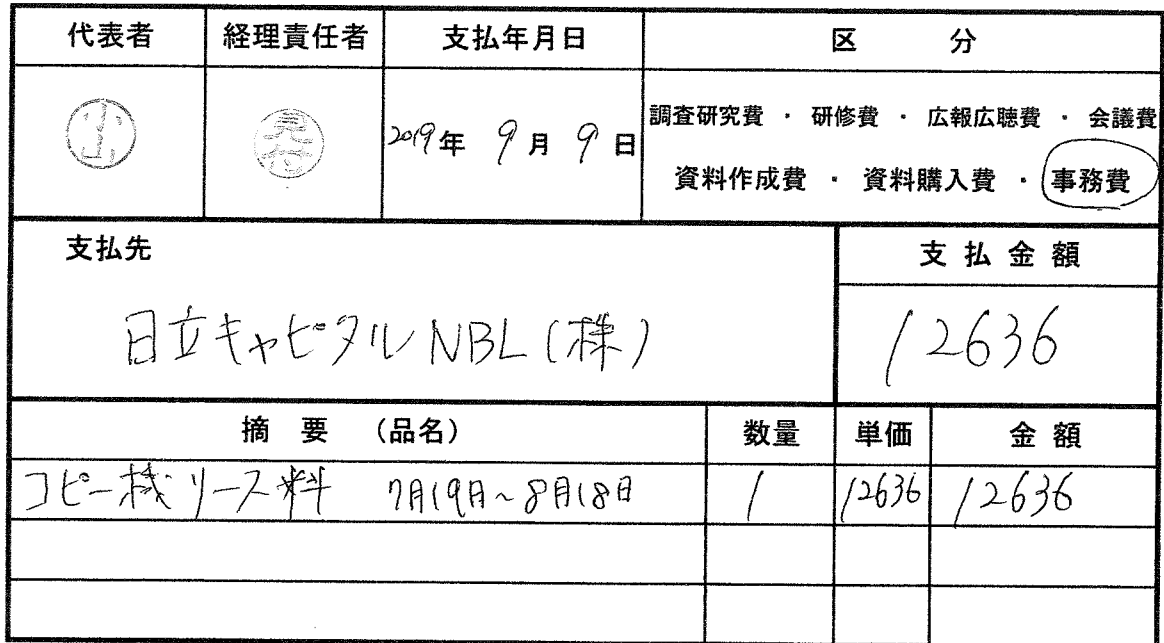 代表者 経理責任者 支払年月日 区 分
小山 見付 2019年 9月 9日
調査研究費 ・ 研修費 ・ 広報広聴費 ・ 会議費
資料作成費 ・ 資料購入費 ・ 事務費
支払先 支払金額
日立キャピタルNBL(株) 12636
摘 要 (品名) 数量 単価 金額
コピー機リース料 7月19日~8月18日 1 12636 12636